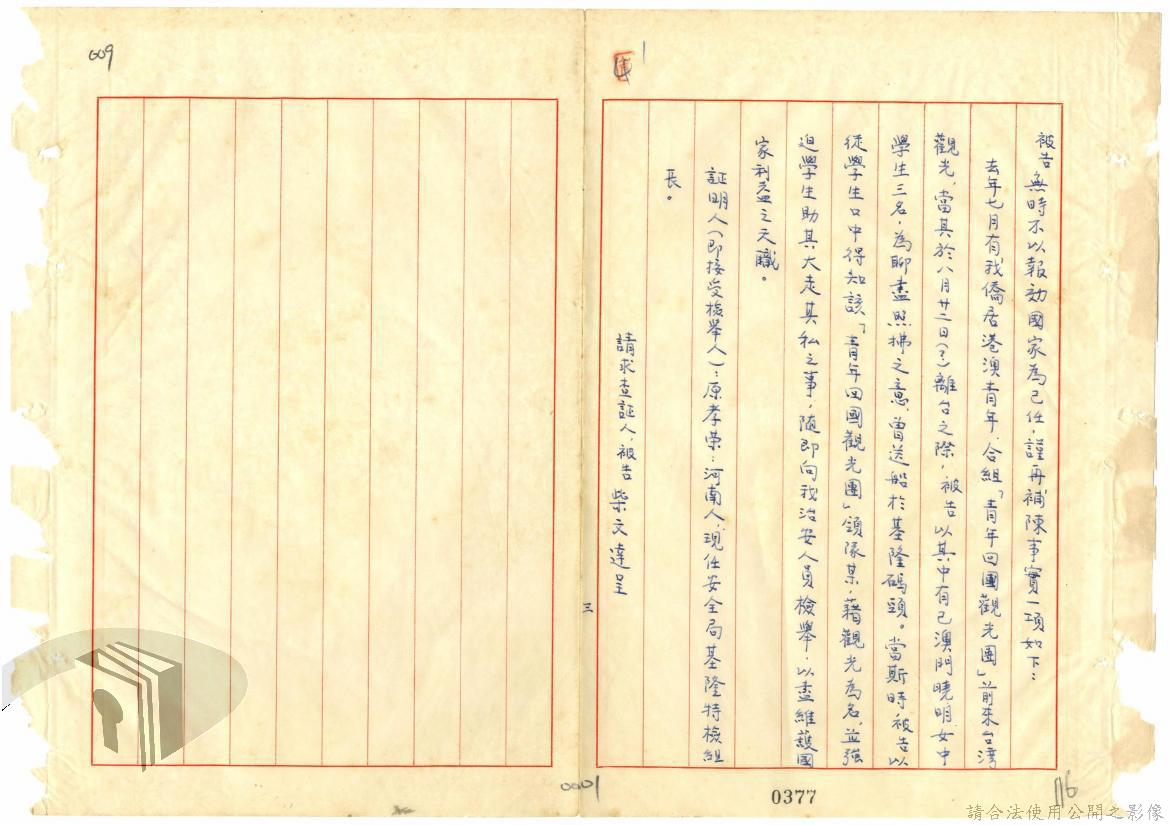 被告無時不以報効國家為己任，謹再補陳事實一項如下：
去年七月有我僑居港澳青年，合組「青年回國觀光團」前來台湾
觀光，當其於八月廿二日(？)離台之際，被告以其中有己澳門曉明女中
學生三名，為聊盡照拂之意，曾送船於基隆碼頭。當斯時被告以
從學生口中得知該「青年回國觀光團」領隊某，藉觀光為名，並強
迫學生助其大走其私之事，随即向我治安人員檢舉，以盡維護國
家利益之天職。
証明人(即接受檢舉人)：原孝荣：河南人，現任安全局基隆特檢組
長。
請求查証人，被告 柴文達呈
三
009
0001
0377
116
請合法使用公開之影像